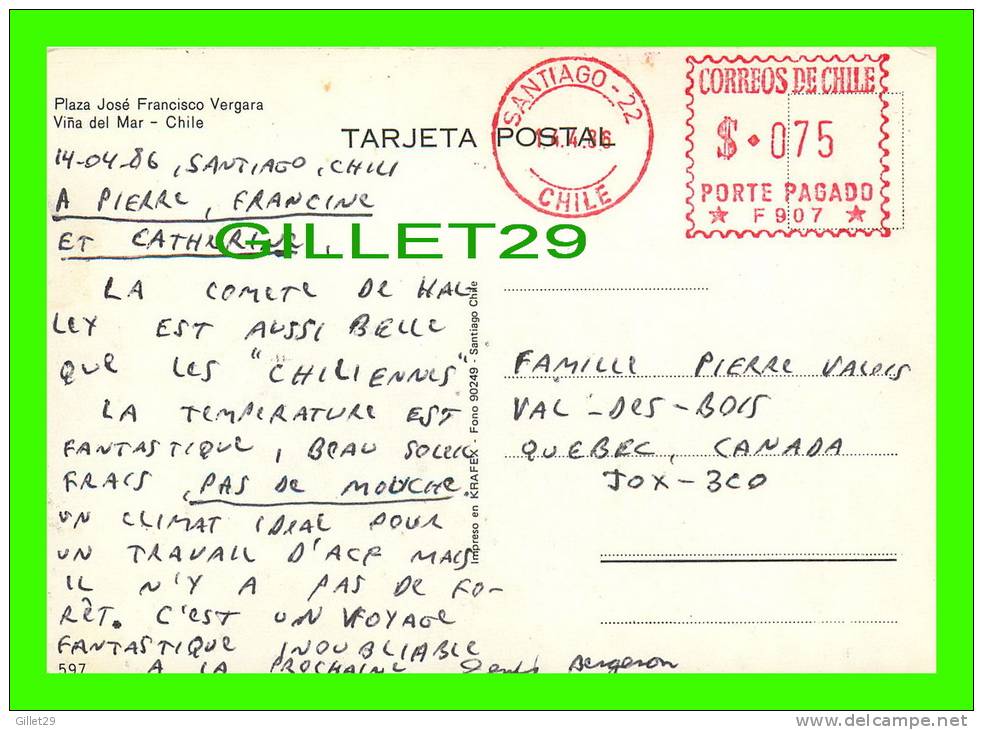 Plaza José Francisco Vergara
Viña del Mar - Chile
TARJETA POSTAL
SANTIAGO - 22
14.4.86
CHILE
CORREOS DE CHILE
$ 075
PORTE PAGADO
F907
14-04-86, SANTIAGO, CHILI
A PIERRE, FRANCINE
ET CATHERINE,
GILLET29
LA COMETE DE HAL-
LEY EST AUSSI BELLE
QUE LES "CHILIENNES".
LA TEMPERATURE EST
FANTASTIQUE, BEAU SOLEIL
FRAIS, PAS DE MOUCHE.
UN CLIMAT IDEAL POUR
UN TRAVAIL D'ACF MAIS
IL N'Y A PAS DE FO-
RÊT. C'EST UN VOYAGE
FANTASTIQUE INOUBLIABLE
597 A LA PROCHAINE Bergeron
Impreso en KRAFEX - Fono 90249 - Santiago Chile
FAMILLE PIERRE VALOIS
VAL-DES-BOIS
QUEBEC, CANADA
JOX-3CO
Gillet29
http://www.delcampe.net